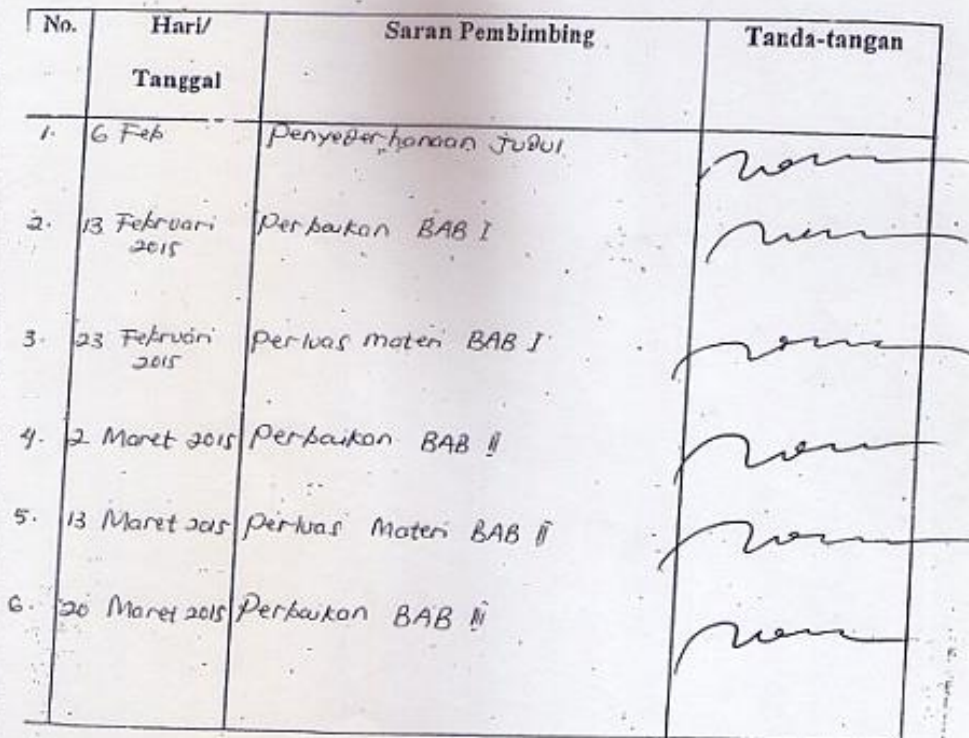 No. Hari/ Saran Pembimbing Tanda-tangan
Tanggal
1. 6 Feb Penyederhanaan judul
2. 13 Februari Perbaikan BAB I
2015
3. 23 Februari Perluas materi BAB I
2015
4. 2 Maret 2015 Perbaikan BAB II
5. 13 Maret 2015 Perluas Materi BAB II
6. 20 Maret 2015 Perbaikan BAB III